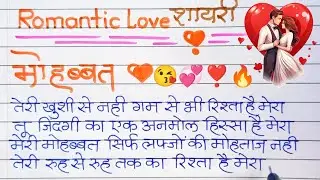 Romantic Love शायरी
मोहब्बत
तेरी खुशी से नही गम से भी रिश्ता है मेरा
तू जिंदगी का एक अनमोल हिस्सा है मेरा
मेरी मोहब्बत सिर्फ लफ्जों की मोहताज नही
तेरी रुह से रुह तक का रिश्ता है मेरा